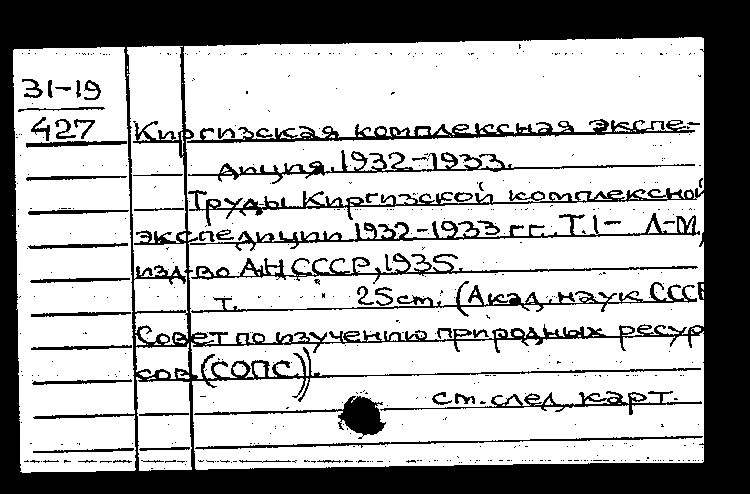 31-19
427
Киргизская комплексная экспе-
диция. 1932-1933.
Труды Киргизской комплексной
экспедиции 1932-1933 гг. Т. 1- Л-М,
изд-во АН СССР, 1935.
т. 25 cm. (Акад. наук СССР
Совет по изучению природных ресур
сов (СОПС)).
см. след. карт.